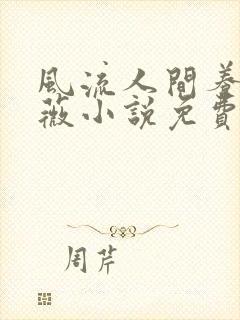 風流人間養
薇小說免費
周芹